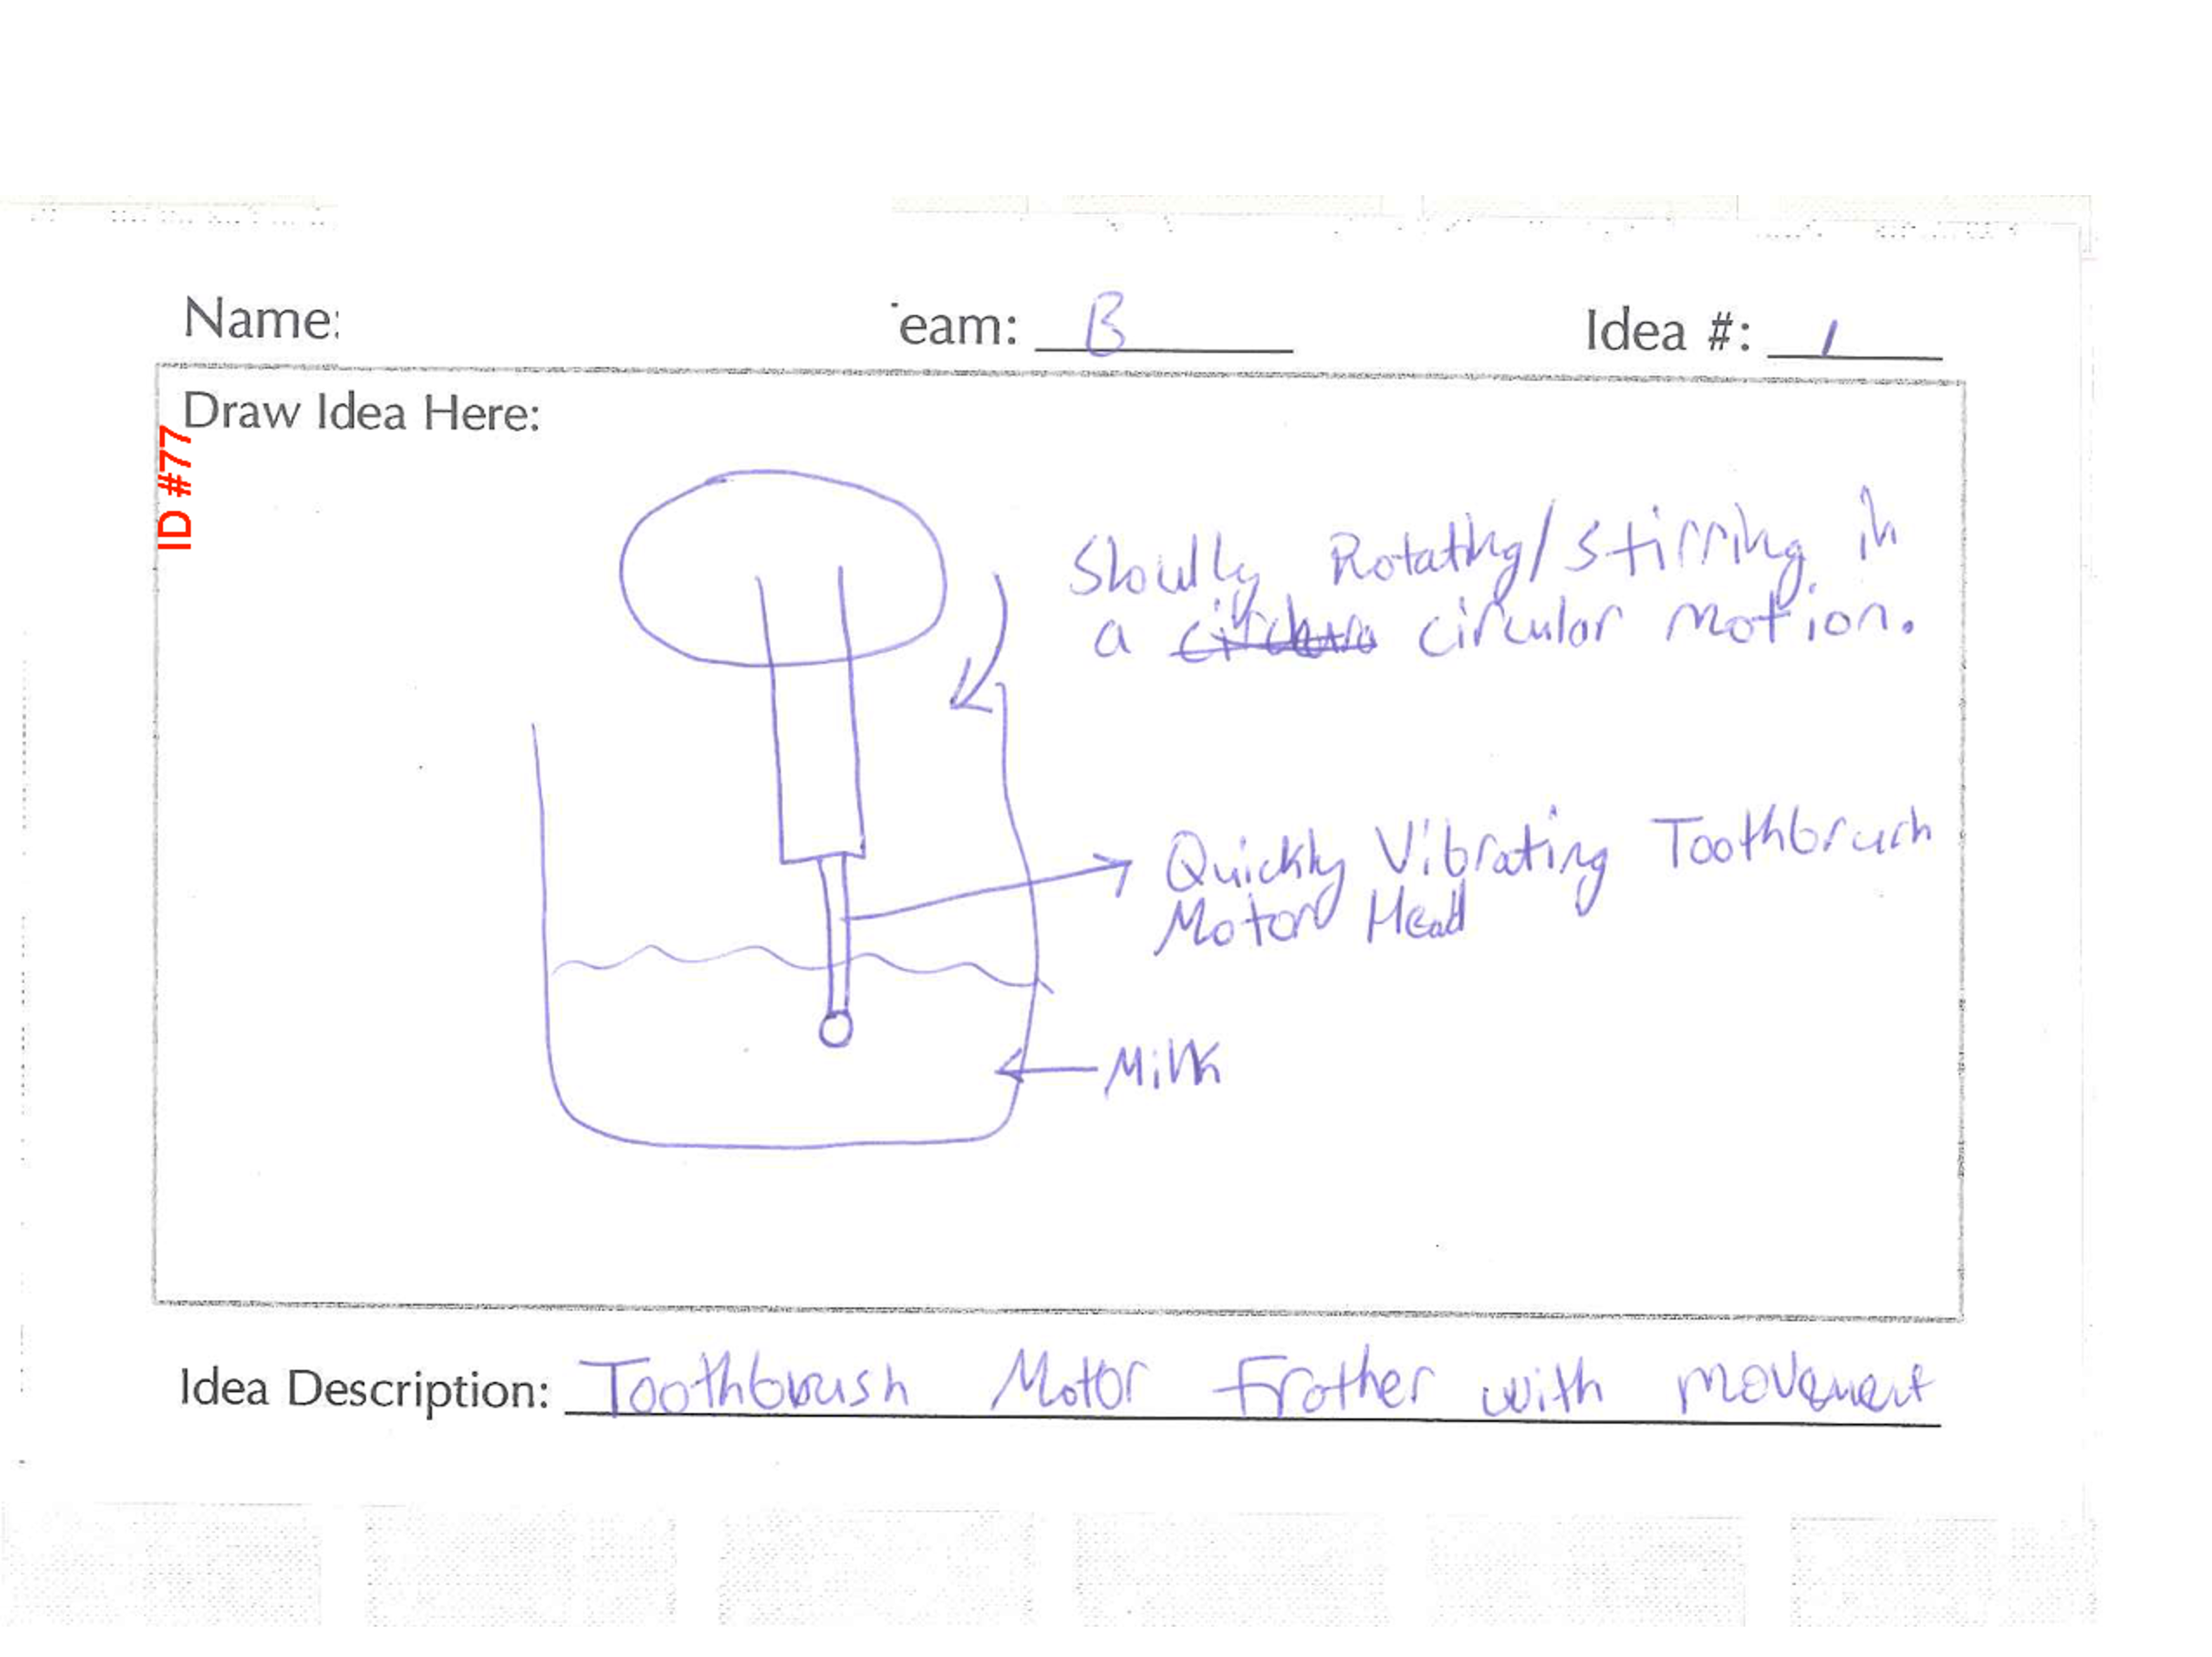 Name:
eam: B
Idea #: 1
Draw Idea Here:
ID #77
Slowlly Rotating/stirring in
a circular motion.
Quickly Vibrating Toothbrush
Motor Head
Milk
Idea Description: Toothbrush Motor Frother with movement